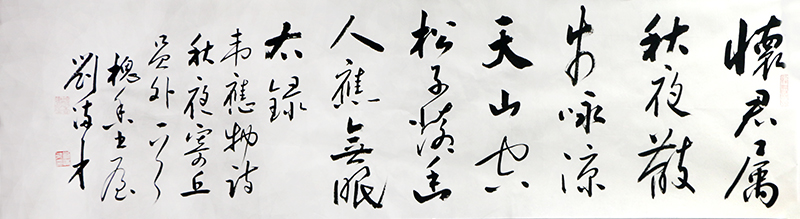 懷君屬
秋夜散
步咏涼
天山空
松子落幽
人應無眠
右録
韋應物詩
秋夜寄丘
員外一首
劉
才